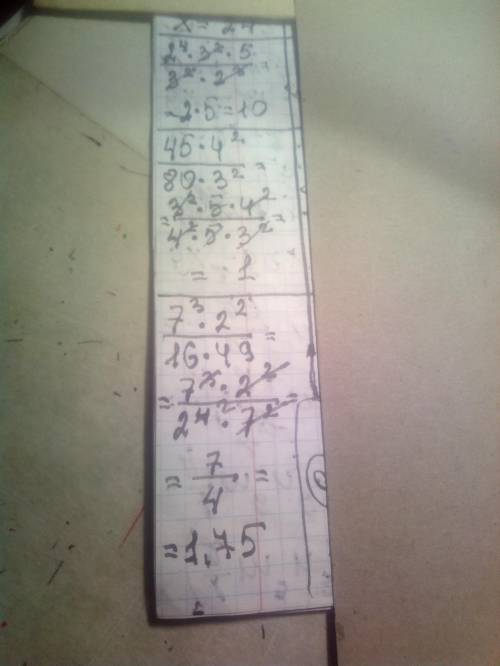 x = 24
2⁴·3²·5 / 3²·2³ =
= 2·5 = 10
45·4² / 80·3² =
= 3²·5·4² / 4²·5·3² =
= 1
7³·2² / 16·49 =
= 7³·2² / 2⁴·7² =
= 7/4 =
= 1,75